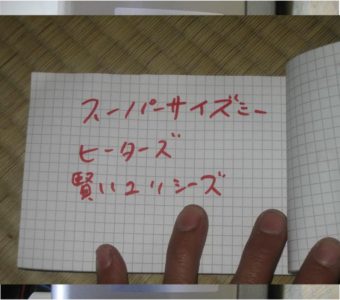 スーパーサイズミー
ヒーターズ
賢いユリシーズ